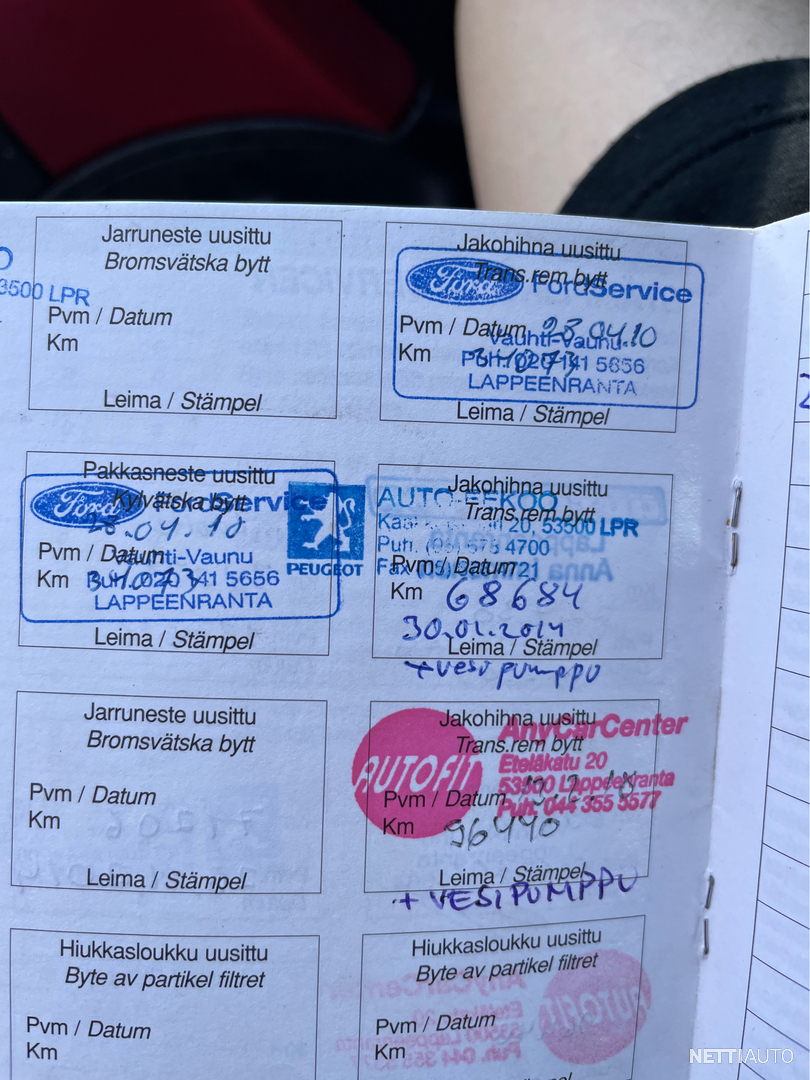 3500 LPR
Jarruneste uusittu
Bromsvätska bytt
Pvm / Datum
Km
Leima / Stämpel
Jakohihna uusittu
Trans.rem bytt
Ford FordService
Pvm / Datum 23.04.10
Vauhti-Vaunu
Km 34073
Puh. 020 141 5656
LAPPEENRANTA
Leima / Stämpel
Pakkasneste uusittu
Kylvätska bytt
Ford FordService
Pvm / Datum
Vauhti-Vaunu
Km 34073
Puh. 020 141 5656
LAPPEENRANTA
Leima / Stämpel
PEUGEOT
Jakohihna uusittu
AUTO-EEKOO
Trans.rem bytt
20, 53500 LPR
Puh. 4700
Pvm / Datum
Km 68684
30.01.2014
Leima / Stämpel
+ vesipumppu
Jarruneste uusittu
Bromsvätska bytt
Pvm / Datum
Km
Leima / Stämpel
Jakohihna uusittu
Trans.rem bytt
AUTOFIT
AnyCarCenter
Eteläkatu 20
53500 Lappeenranta
Puh. 044 355 5577
Pvm / Datum
Km 96440
Leima / Stämpel
+ VESIPUMPPU
Hiukkasloukku uusittu
Byte av partikel filtret
Pvm / Datum
Km
Hiukkasloukku uusittu
Byte av partikel filtret
Pvm / Datum
Km
NETTIAUTO